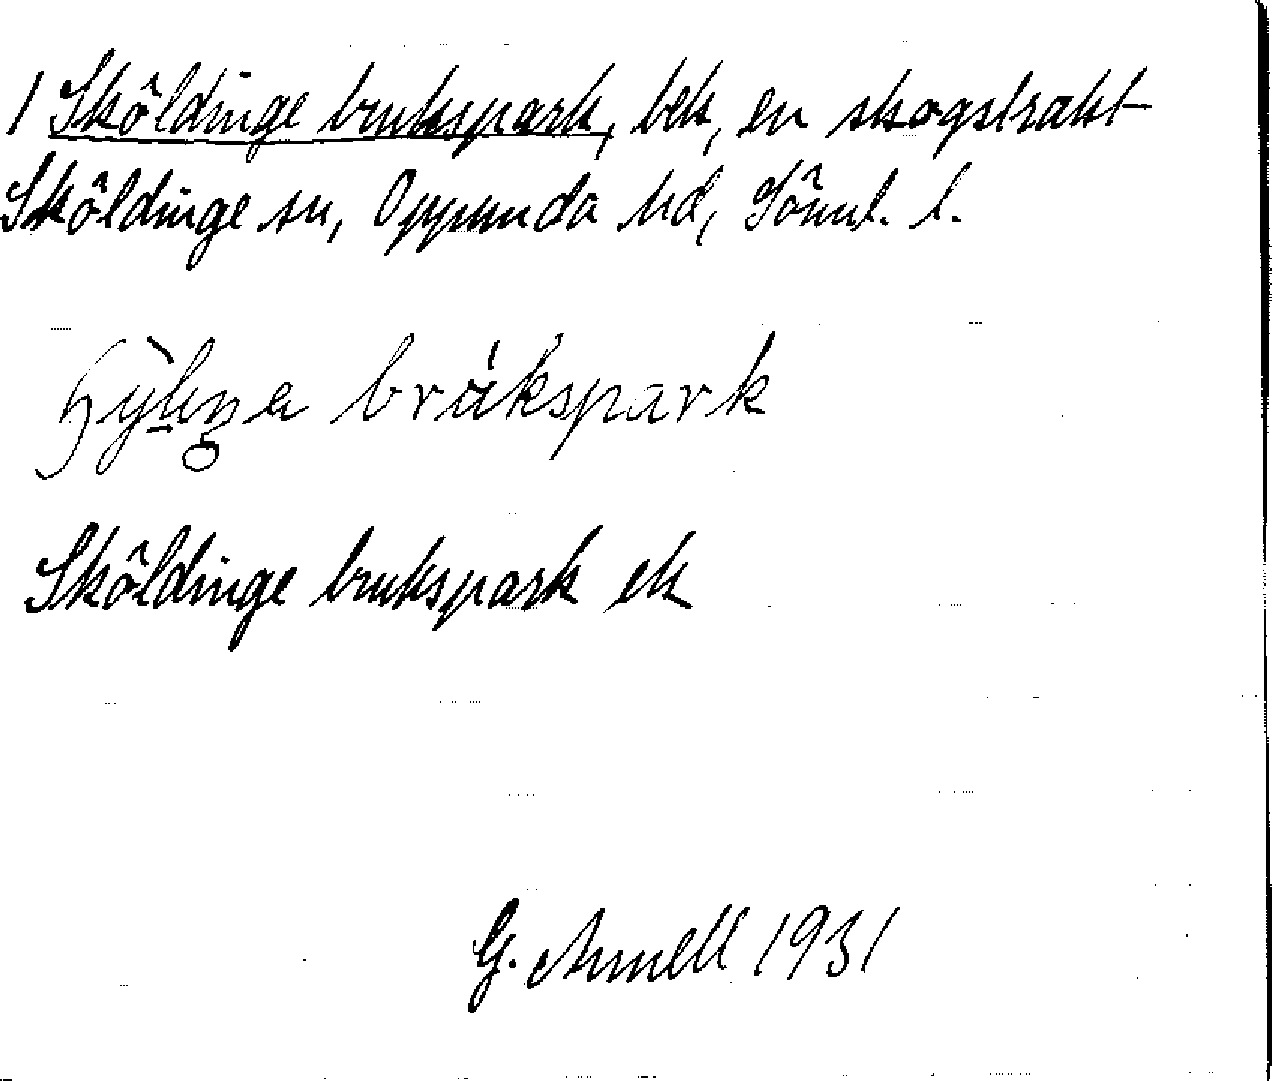 1 Sköldinge brukspark, bek, en skogstrakt
Sköldinge sn, Oppunda hd, Söml. l.
brùkspark
Sköldinge brukspark ek
G. Arnell 1931